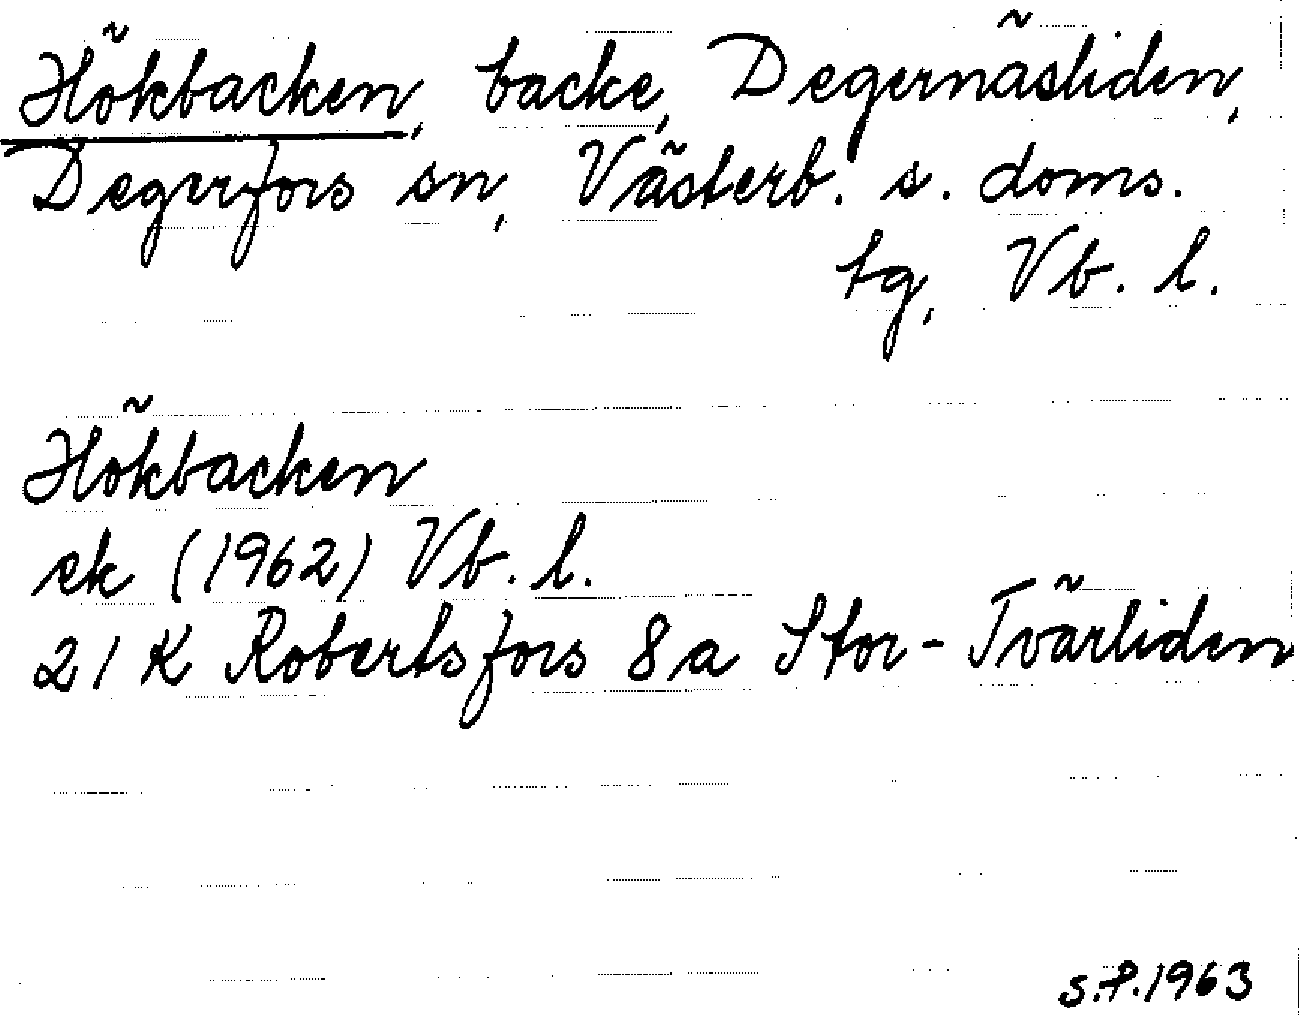 Hökbacken, backe, Degernäsliden,
Degerfors sn, Västerb. s. doms.
tg, Vb. l.
Hökbacken
ek (1962) Vb. l.
21 K Robertsfors 8a Stor-Tvärliden
S.P. 1963